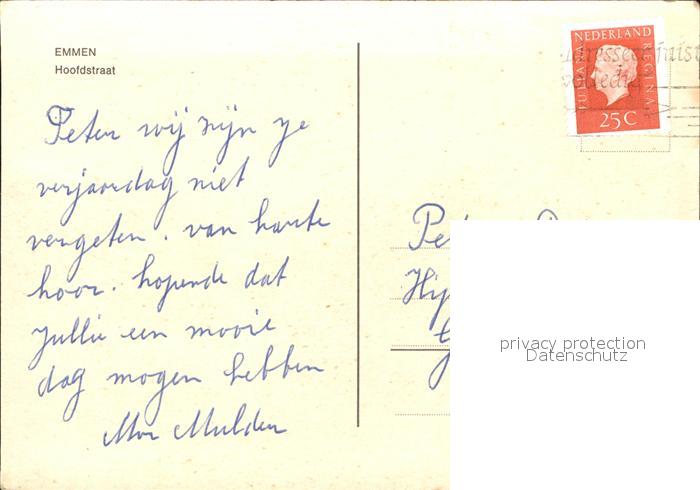 EMMEN
Hoofdstraat
Peter wij zijn je
verjaardag niet
vergeten. van harte
hoor. hopende dat
jullie een mooie
dag mogen hebben
Mulder
NEDERLAND
JULIANA REGINA
25C
privacy protection
Datenschutz